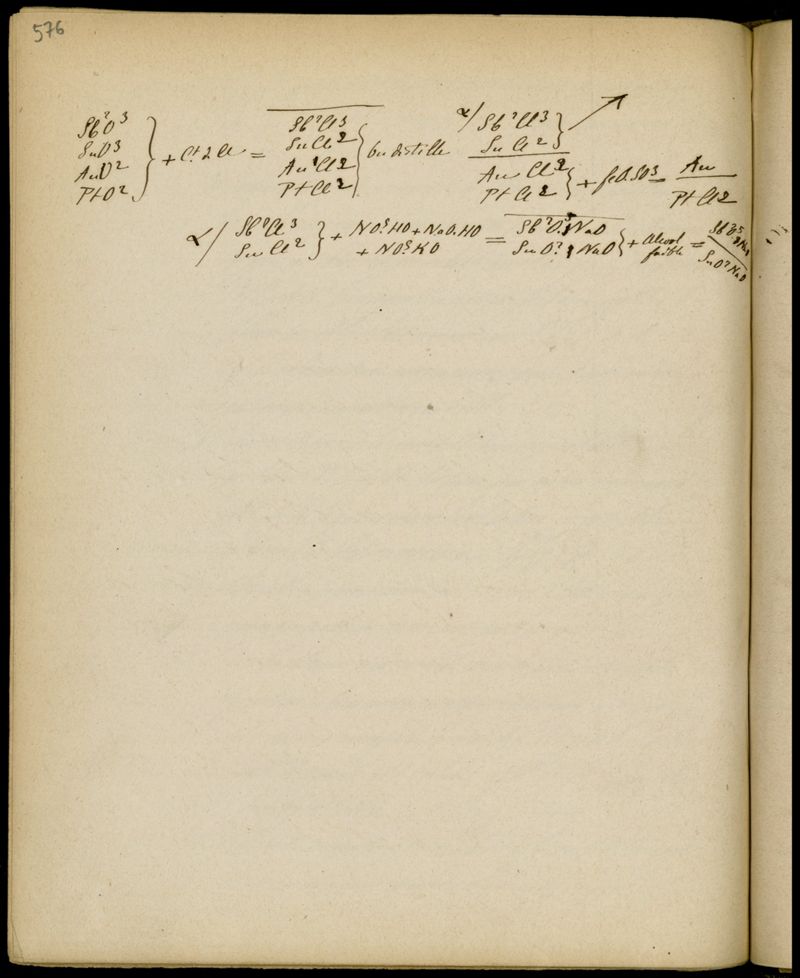 576
Sb²O³
SnO³
AuO²
PtO²
+ Cl =
Sb²Cl³
SnCl²
Au Cl²
PtCl²
on distille
α/ Sb²Cl³
SnCl²
AuCl²
PtCl²
+ feO.SO³ =
Au
PtCl²
α/ Sb²Cl³
SnCl²
+ NO⁵HO + NaO.HO
+ NO⁵KO
=
Sb²O⁵ NaO
SnO² NaO
+ Alcool
faible
=
Sb²O⁵
SnO² NaO